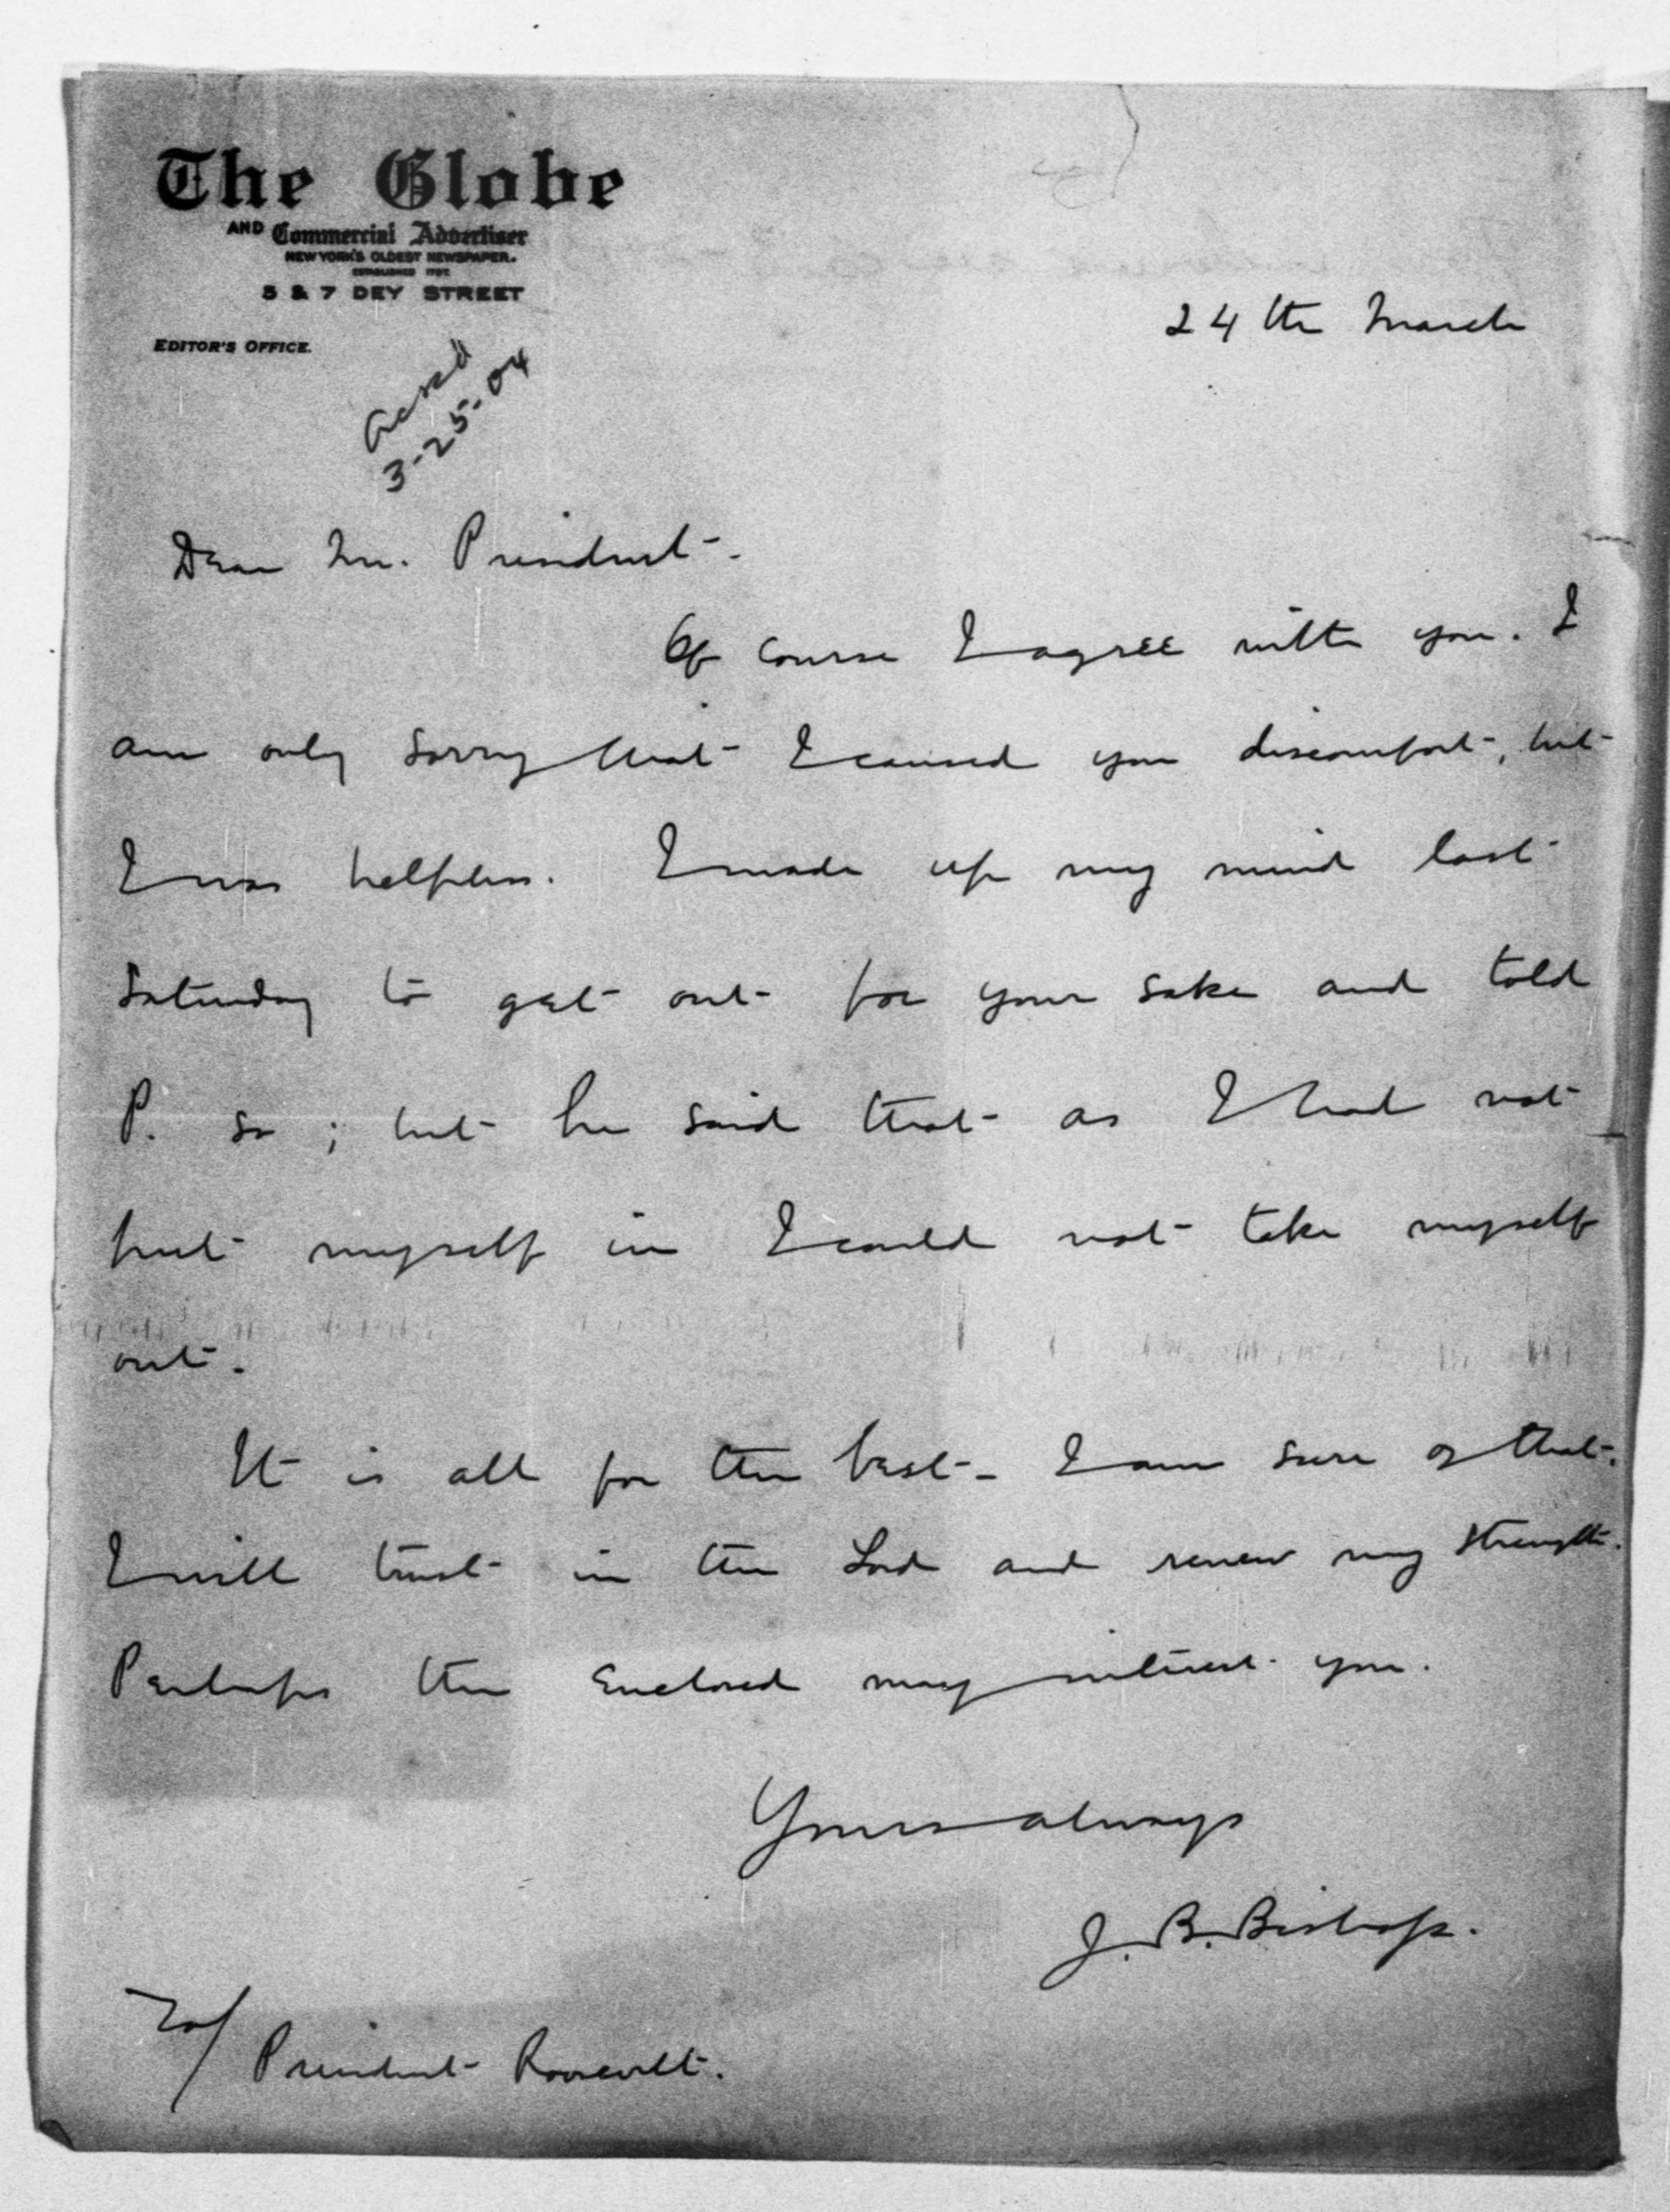 The Globe
AND Commercial Advertiser
NEW YORK'S OLDEST NEWSPAPER.
ESTABLISHED 1797.
5 & 7 DEY STREET
EDITOR'S OFFICE.
24th March
Ackd
3-25-04
Dear Mr. President-.
Of course I agree with you. I
am only sorry that I caused you discomfort, but
I was helpless. I made up my mind last
Saturday to get out for your sake and told
P. so; but he said that as I had not
put myself in I could not take myself
out.
It is all for the best - I am sure of that.
I will trust in the Lord and renew my strength.
Perhaps the enclosed may interest you.
Yours always
J. B. Bishop.
To/
President Roosevelt.